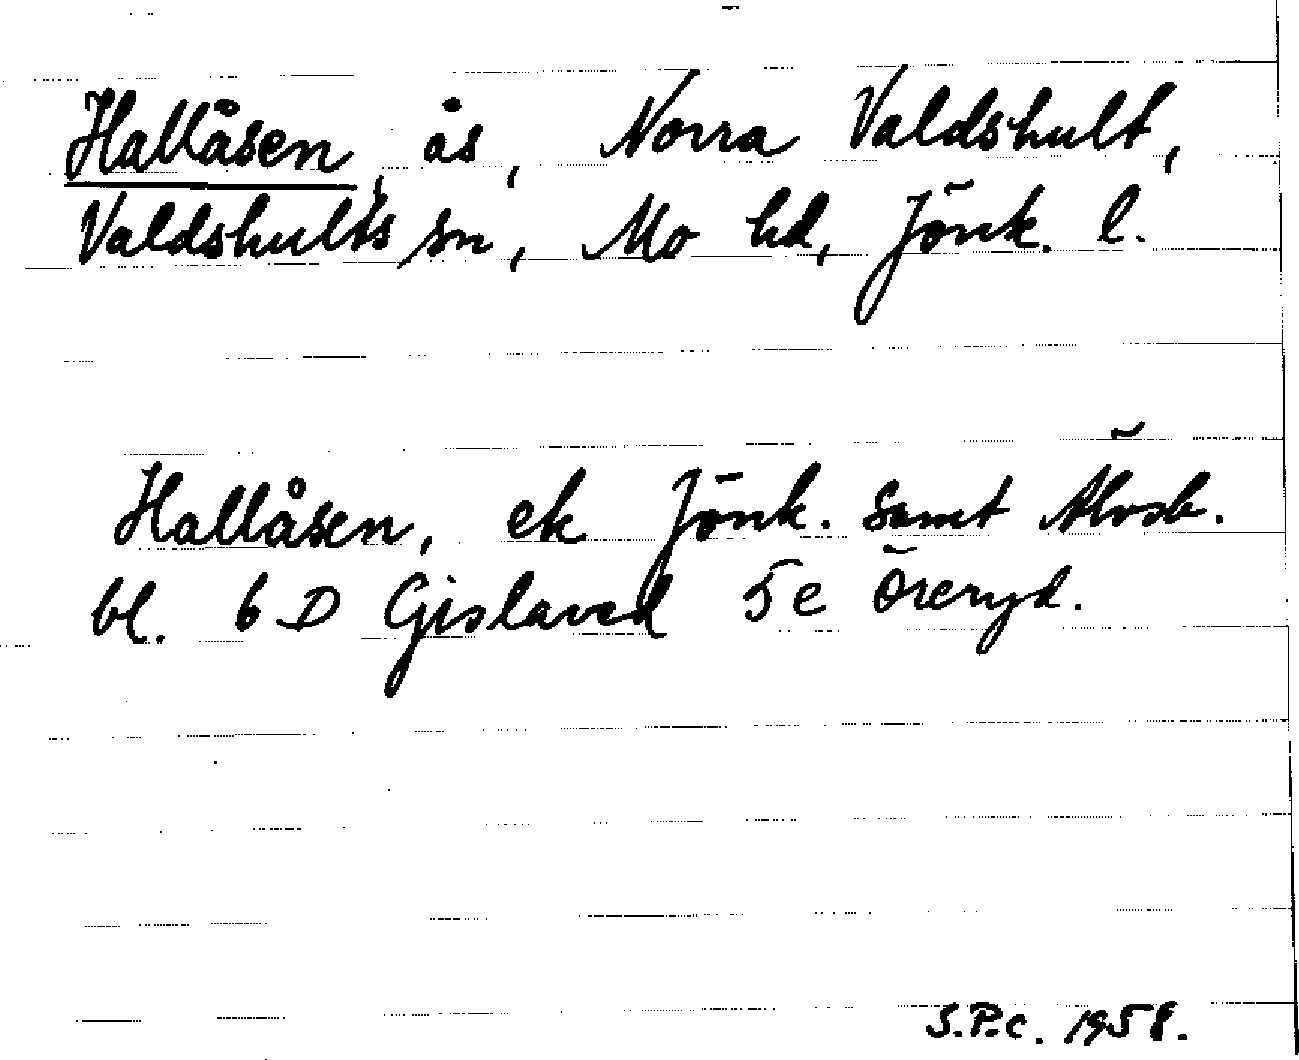 Hallåsen, ås, Norra Valdshult,
Valdshults sn, Mo hd, Jönk. l.
Hallåsen, ek Jönk. samt Älvsb.
bl. 6 D Gislaved 5e Öreryd.
S.P.C. 1958.